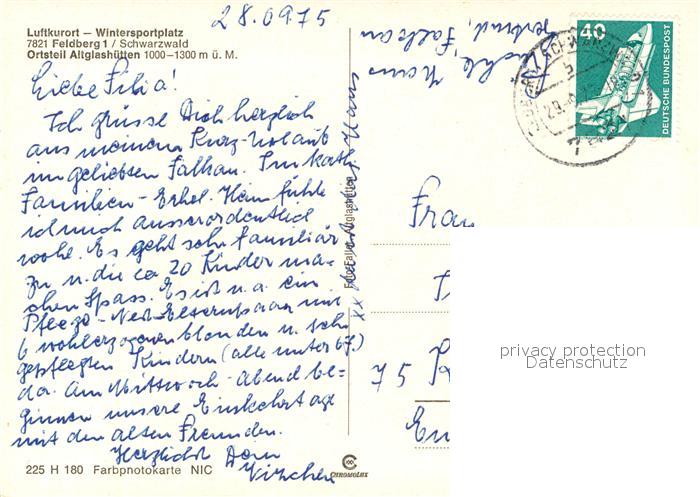 28.0975
Luftkurort – Wintersportplatz
7821 Feldberg 1 / Schwarzwald
Ortsteil Altglashütten 1000–1300 m ü. M.
Liebe Silia!
Ich grüsse Dich herzlich
aus meinem Kurz-Urlaub
im geliebten Falkau. Im kath.
Familien-Erhol. Heim fühle
ich mich ausserordentlich
wohl. Es geht sehr familiär
zu u. die ca 20 Kinder ma-
chen Spass. Es ist u. a. ein
Pflege- Elternpaar mit
6 wohlerzogenen blonden u. sehr
gepflegten Kindern (alle unter 6 J.)
da. Am Mittwoch-Abend be-
ginnen unsere Einkehrtage
mit den alten Freunden.
Herzlichst Dein
225 H 180 Farbphotokarte NIC
CHROMOLUX
Foto Faller, Altglashütten
xx Haus
Haus
Falkau
40
DEUTSCHE BUNDESPOST
Frau
75
privacy protection
Datenschutz